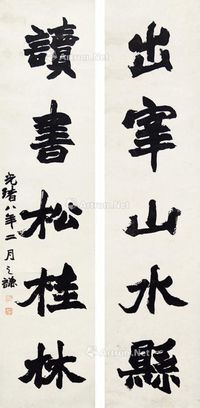 出宰山水縣
讀書松桂林
光緒八年二月之謙